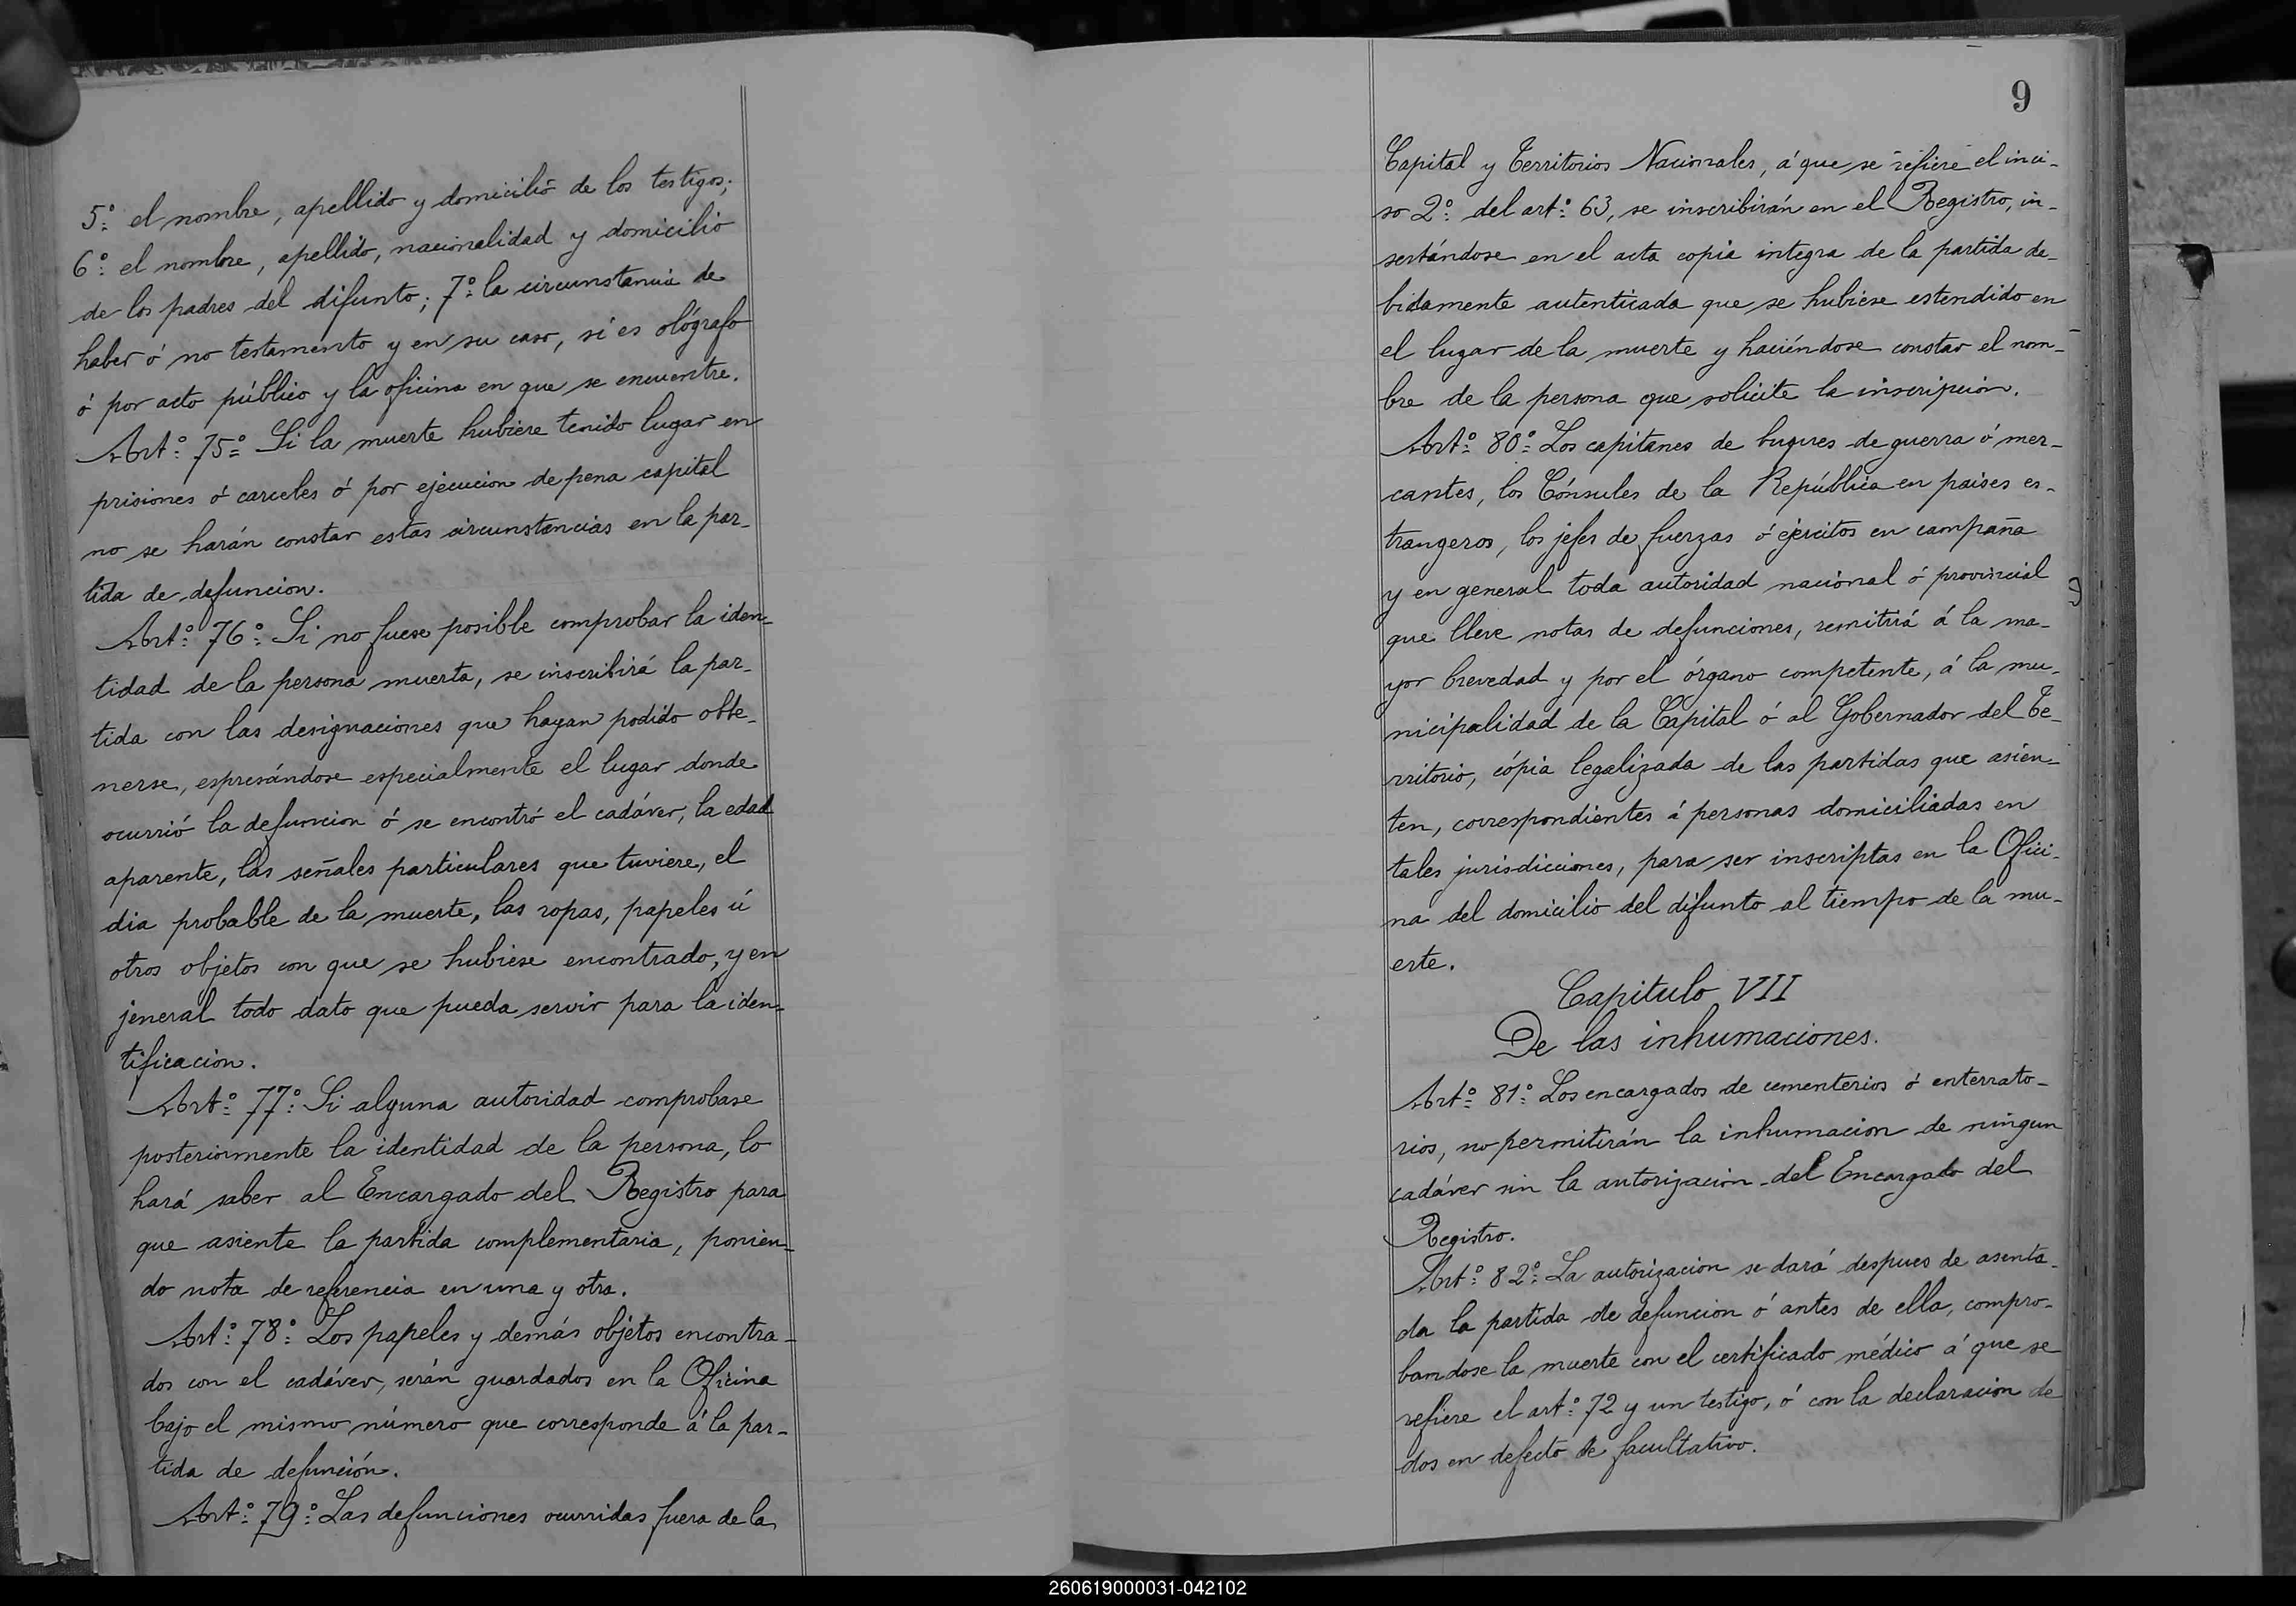 5º el nombre, apellido y domicilio de los testigos;
6º el nombre, apellido, nacionalidad y domicilio
de los padres del difunto; 7º la circunstancia de
haber ó no testamento y en su caso, si es ológrafo
ó por acto público y la oficina en que se encuentre.
Artº 75º Si la muerte hubiere tenido lugar en
prisiones ó carceles ó por ejecucion de pena capital
no se harán constar estas circunstancias en la par-
tida de defuncion.
Artº 76º Si no fuese posible comprobar la iden-
tidad de la persona muerta, se inscribirá la par-
tida con las designaciones que hayan podido obte-
nerse, espresándose especialmente el lugar donde
ocurrió la defuncion ó se encontró el cadáver, la edad
aparente, las señales particulares que tuviere, el
dia probable de la muerte, las ropas, papeles ú
otros objetos con que se hubiese encontrado, y en
jeneral todo dato que pueda servir para la iden-
tificacion.
Artº 77º Si alguna autoridad comprobase
posteriormente la identidad de la persona, lo
hará saber al Encargado del Registro para
que asiente la partida complementaria, ponien-
do nota de referencia en una y otra.
Artº 78º Los papeles y demás objetos encontra-
dos con el cadáver, serán guardados en la Oficina
bajo el mismo número que corresponde á la par-
tida de defunción.
Artº 79º Las defunciones ocurridas fuera de la
9
Capital y Territorios Nacionales, á que se refiere el inci-
so 2º del artº 63, se inscribirán en el Registro, in-
sertándose en el acta copia integra de la partida de-
bidamente autenticada que se hubiese estendido en
el lugar de la muerte y haciéndose constar el nom-
bre de la persona que solicite la inscripcion.
Artº 80º Los capitanes de buques de guerra ó mer-
cantes, los Cónsules de la República en paises es-
trangeros, los jefes de fuerzas ó ejércitos en campaña
y en general toda autoridad nacional ó provincial
que lleve notas de defunciones, remitirá á la ma-
yor brevedad y por el órgano competente, á la mu-
nicipalidad de la Capital ó al Gobernador del Te-
rritorio, cópia legalizada de las partidas que asien-
ten, correspondientes á personas domiciliadas en
tales jurisdicciones, para ser inscriptas en la Ofici-
na del domicilio del difunto al tiempo de la mu-
erte.
Capitulo VII
De las inhumaciones.
Artº 81º Los encargados de cementerios ó enterrato-
rios, no permitirán la inhumacion de ningun
cadáver sin la autorizacion del Encargado del
Registro.
Artº 82º La autorizacion se dará despues de asenta-
da la partida de defuncion ó antes de ella, compro-
bandose la muerte con el certificado médico á que se
refiere el artº 72 y un testigo, ó con la declaracion de
dos en defecto de facultativo.
260619000031-042102